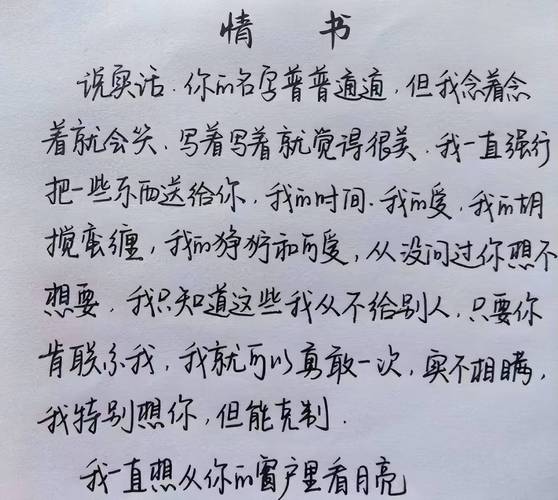 情 书
说实话.你的名字普普通通,但我念着念
着就会笑,写着写着就觉得很美.我一直强行
把一些东西送给你,我的时间.我的爱,我的胡
搅蛮缠,我的狰狞和可爱,从没问过你想不
想要,我只知道这些我从不给别人,只要你
肯联系我,我就可以勇敢一次,实不相瞒,
我特别想你,但能克制.
我一直想从你的窗户里看月亮